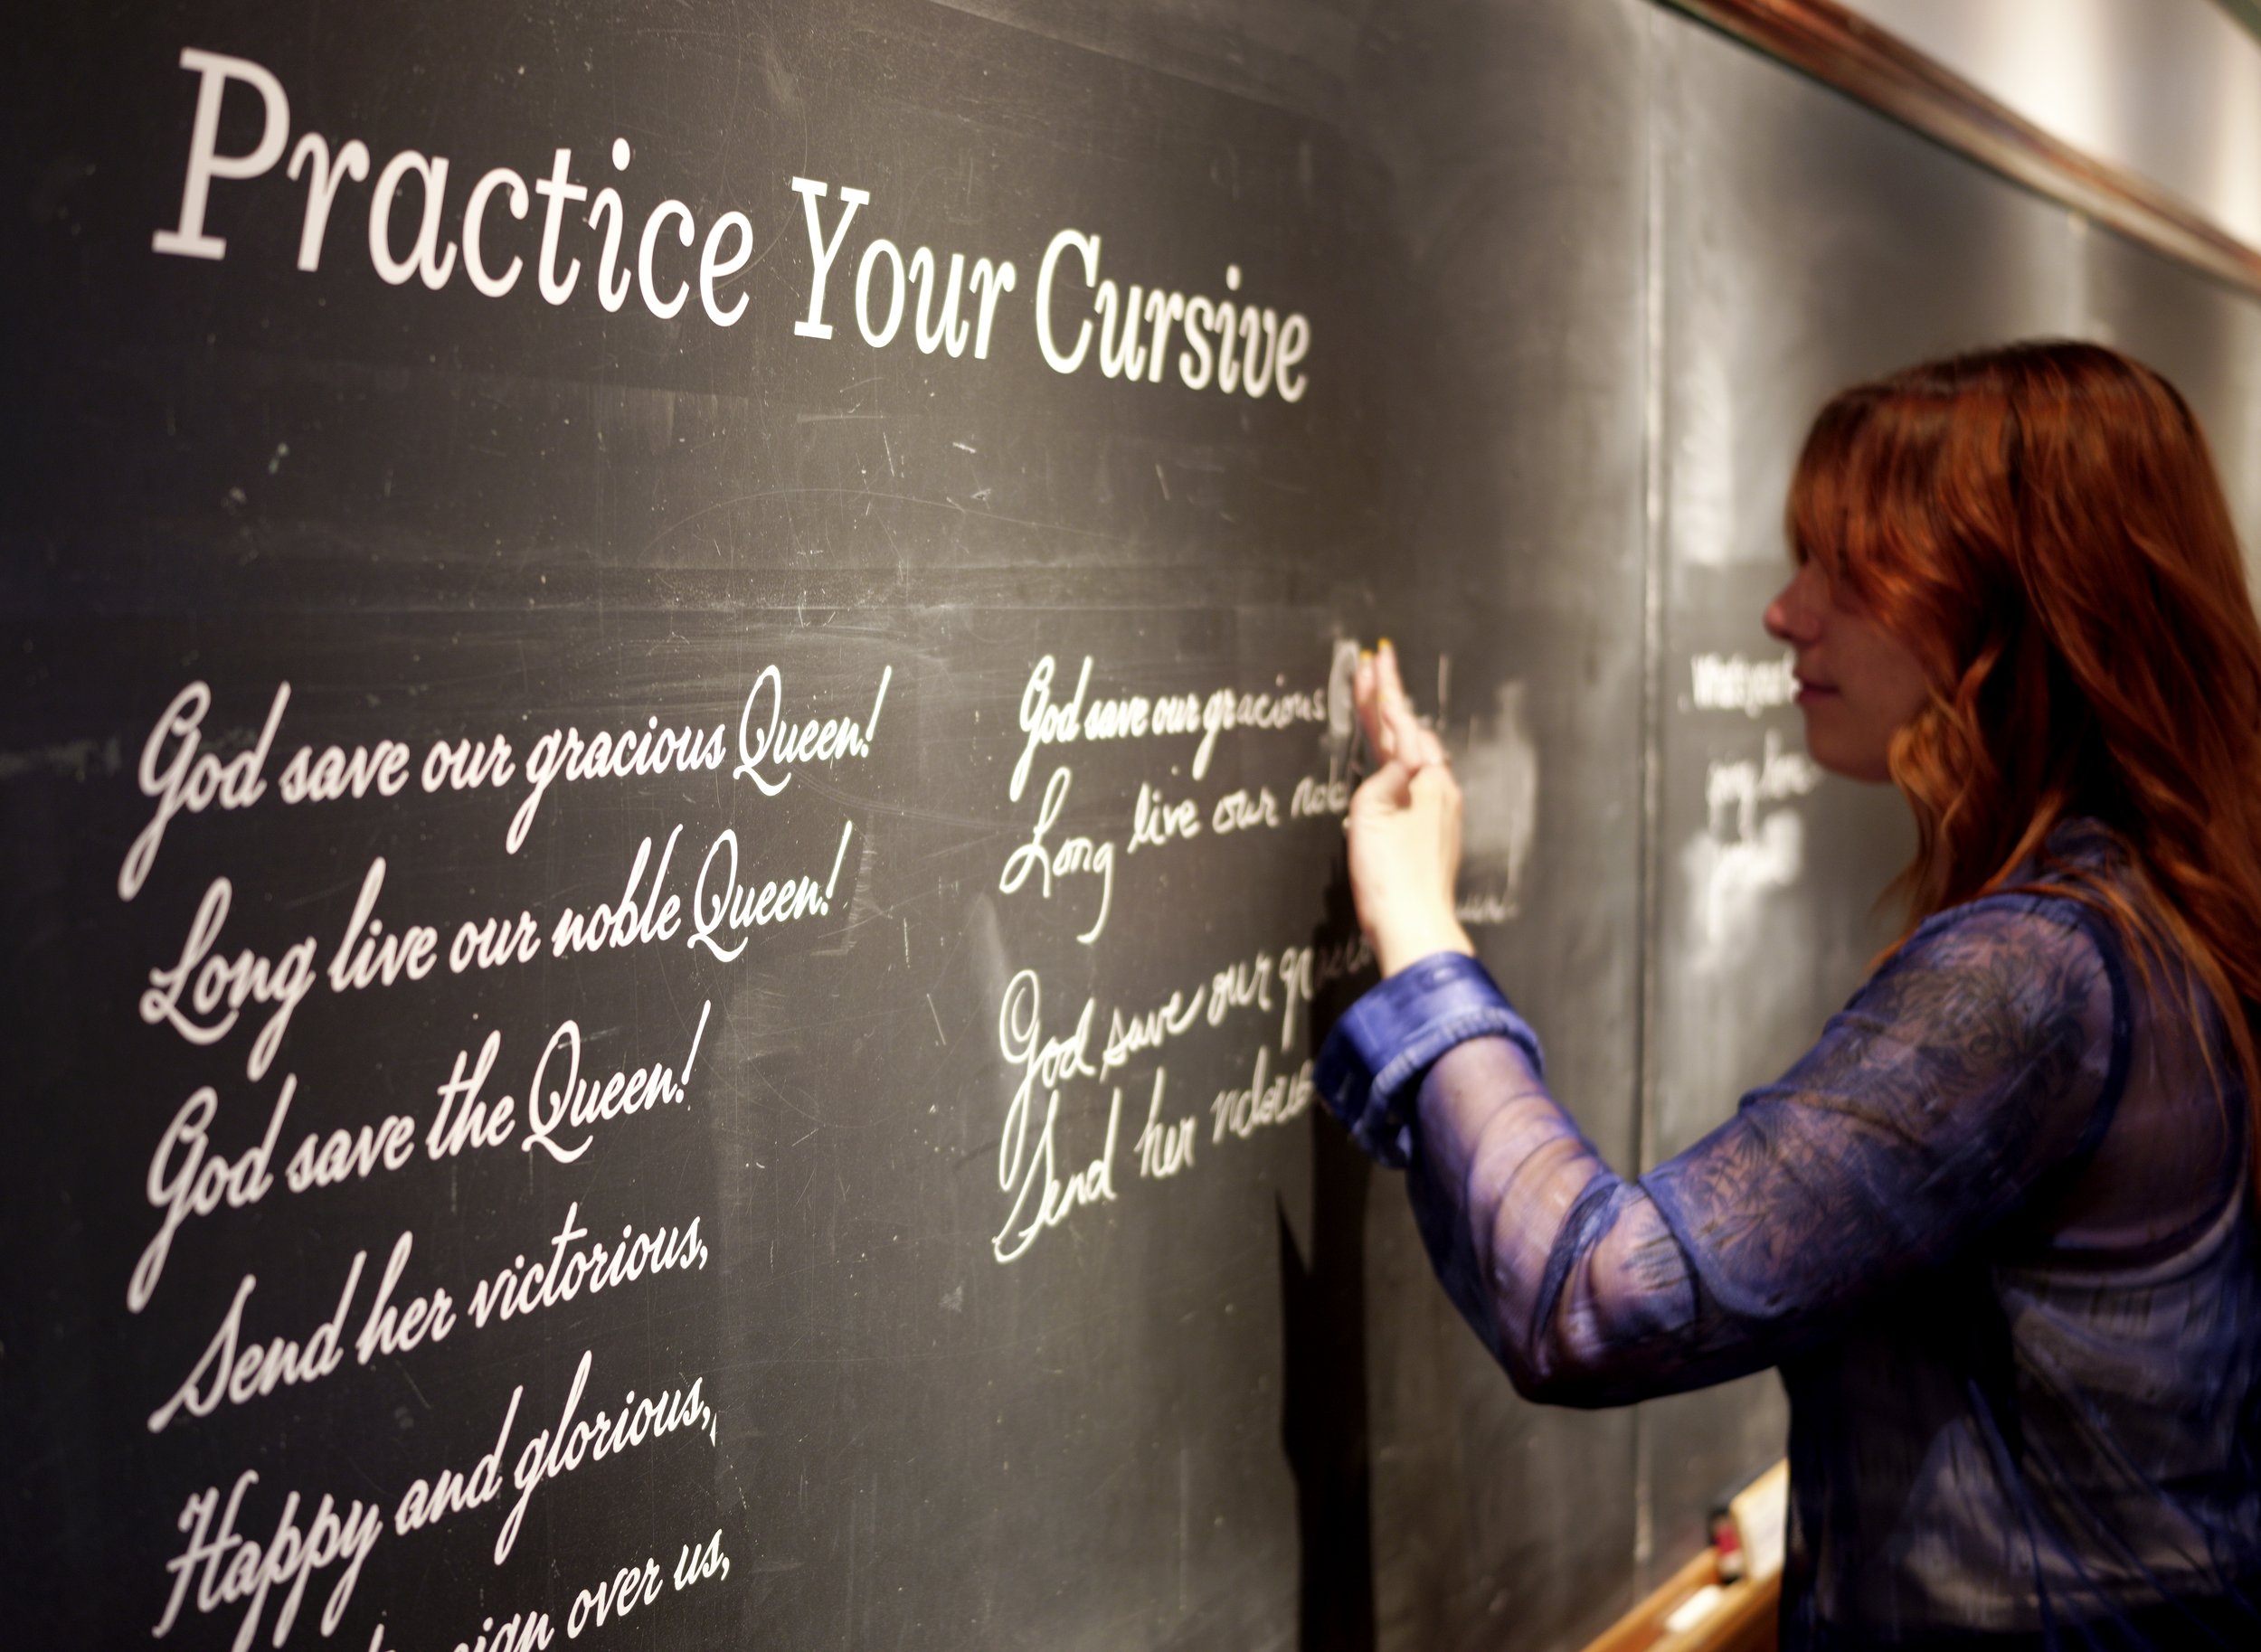 Practice Your Cursive
God save our gracious Queen!
Long live our noble Queen!
God save the Queen!
Send her victorious,
Happy and glorious,
over us,
God save our gracious
Long live our
God save our
Send her